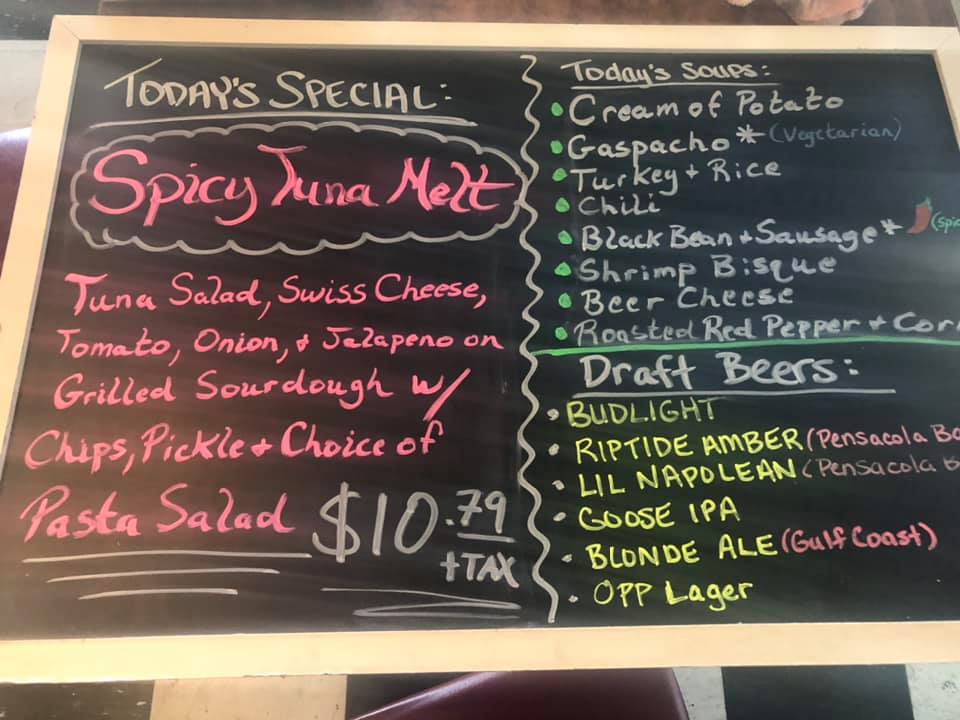 TODAY'S SPECIAL:
Spicy Tuna Melt
Tuna Salad, Swiss Cheese,
Tomato, Onion, + Jalapeno on
Grilled Sourdough w/
Chips, Pickle + Choice of
Pasta Salad $10.79
+TAX
Today's Soups:
• Cream of Potato
• Gaspacho * (Vegetarian)
• Turkey + Rice
• Chili
• Black Bean + Sausage * (Spic
• Shrimp Bisque
• Beer Cheese
• Roasted Red Pepper + Cor
Draft Beers:
• BUDLIGHT
• RIPTIDE AMBER (Pensacola Ba
• LIL NAPOLEAN (Pensacola
• GOOSE IPA
• BLONDE ALE (Gulf Coast)
• OPP Lager